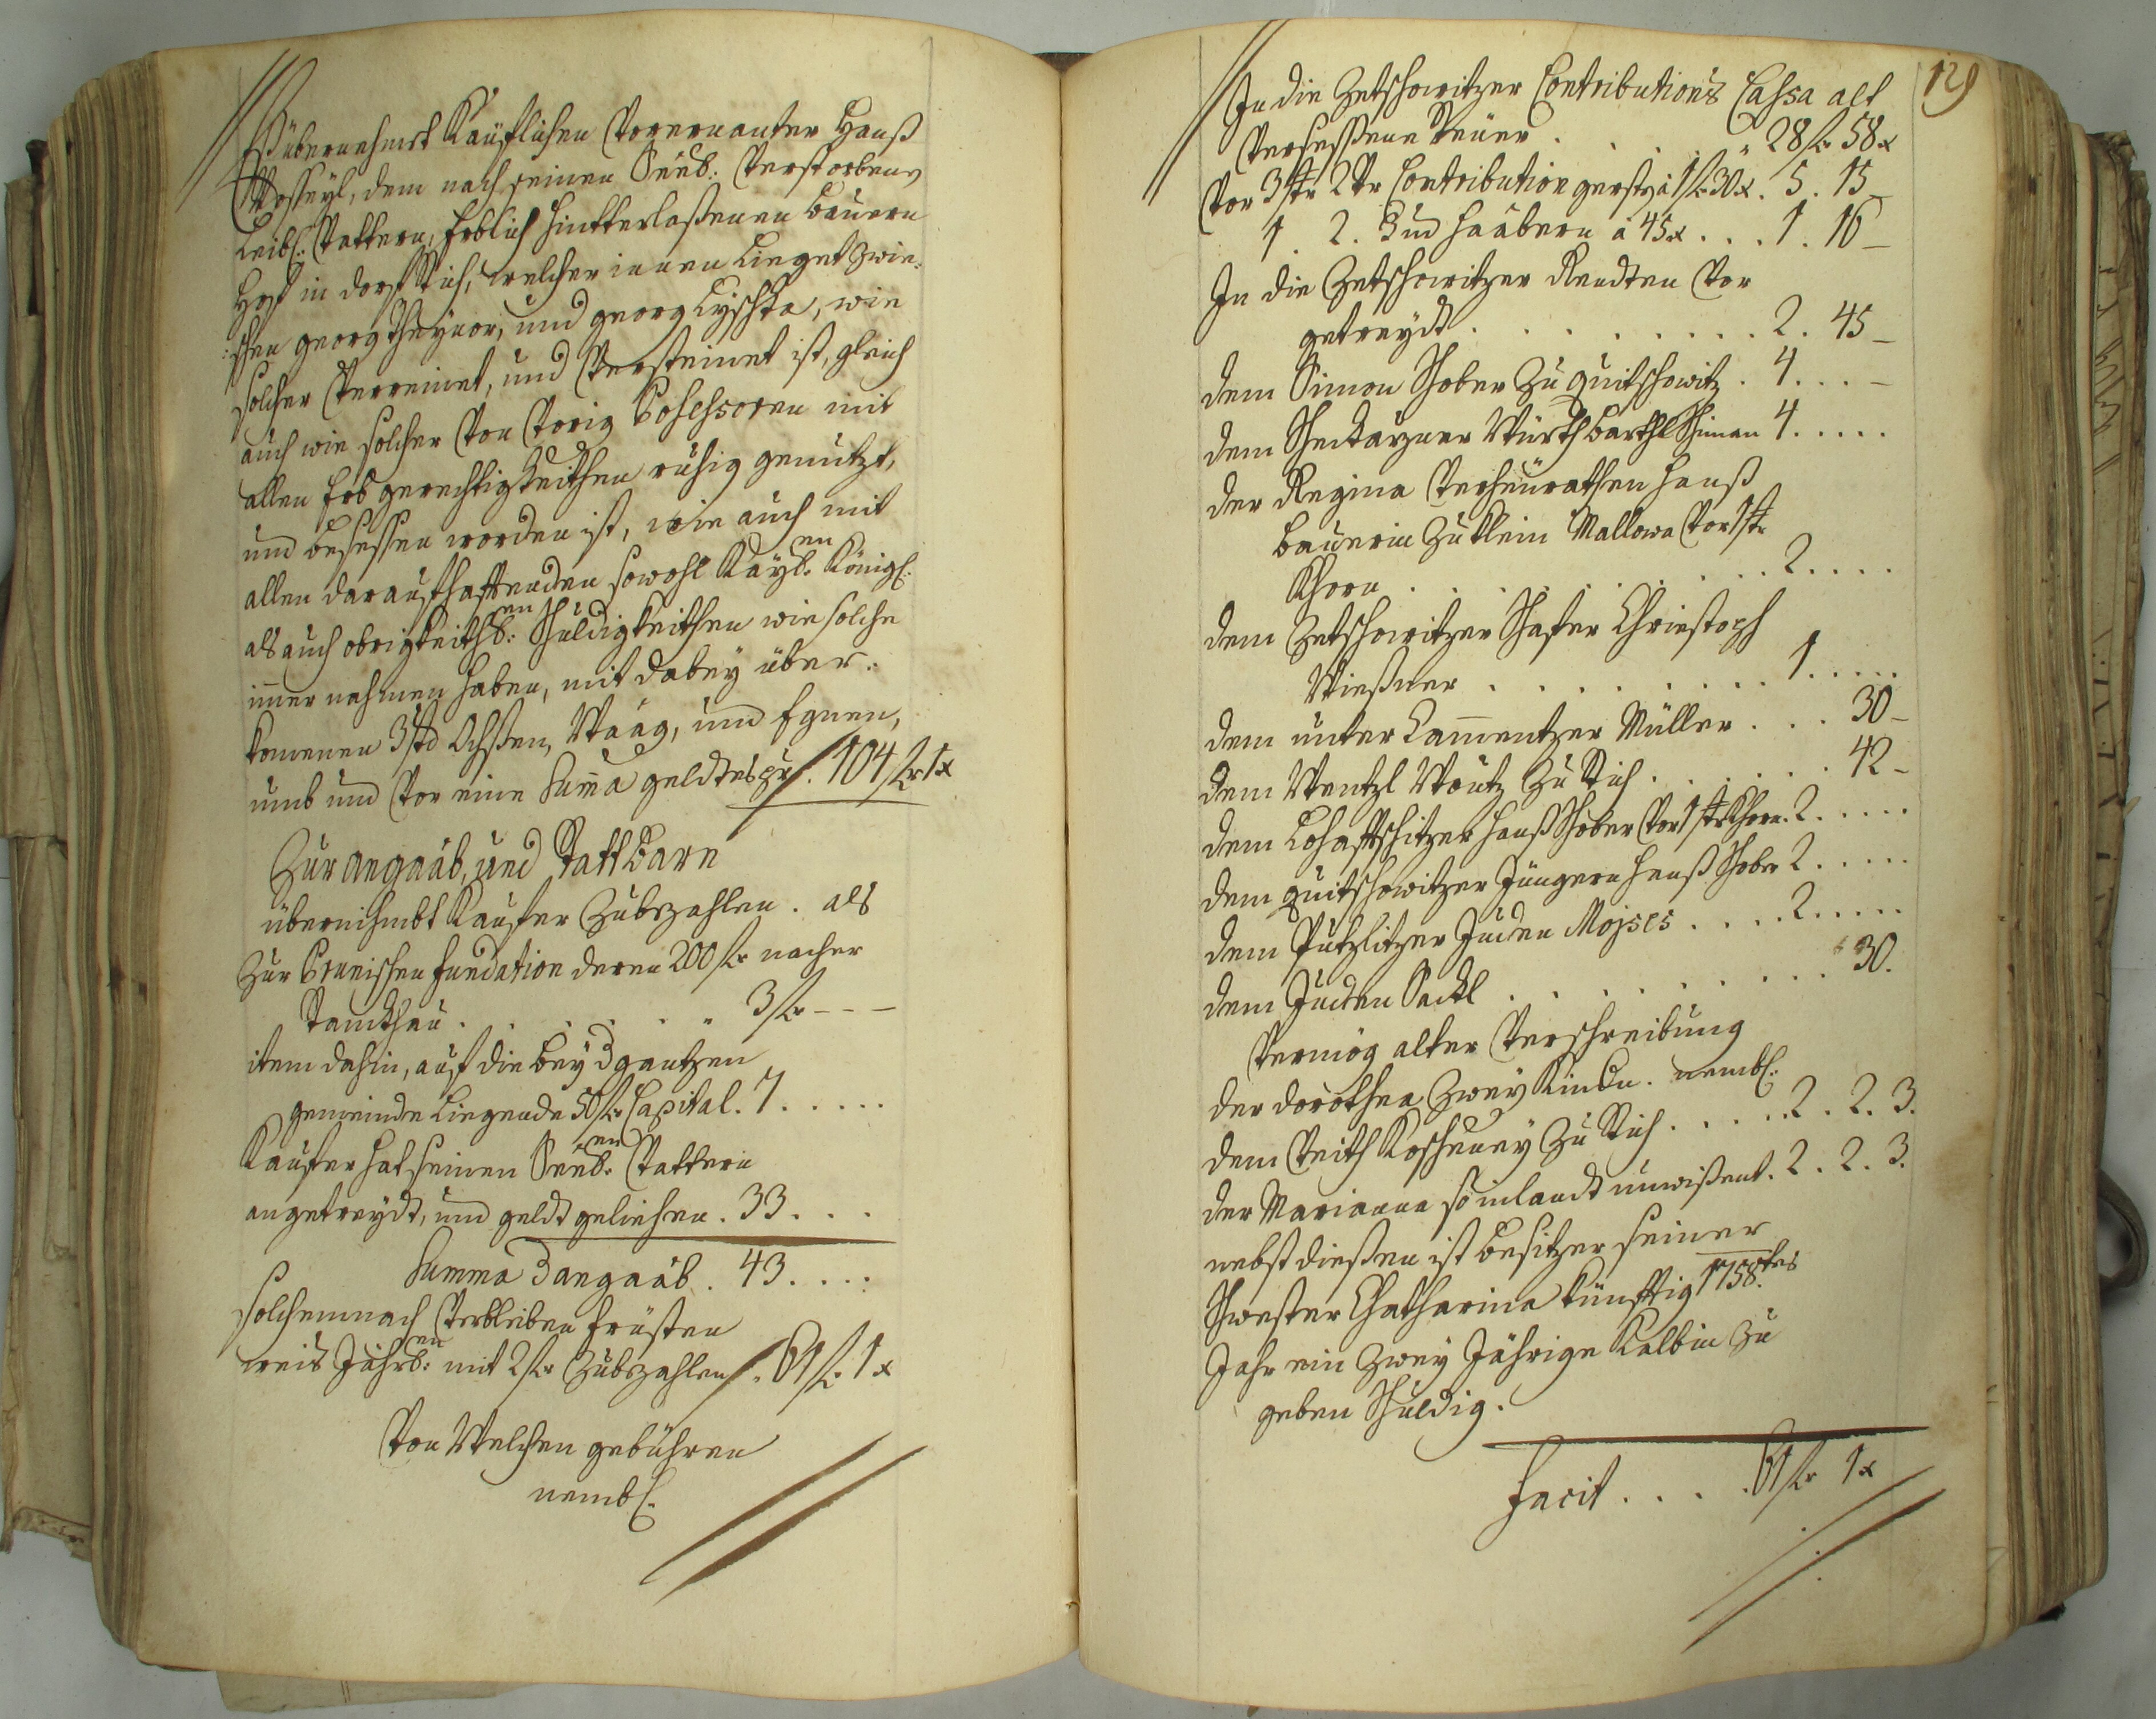 Übernehmet Käuflichen Vorernanter Hanß
Wosseyl, dem nach seinen Seeb: Verstorbenen
Leibl: Vattern, Erblich hinterlaßenen Bauern
Hof in dorf Stich, welcher innen Lieget zwie:
:schen georg Theÿnor, und georg Lyschka, wie
solcher Verreinet, und Versteinet ist, gleich
auch wie solcher Von Vorig Possessoren mit
allen Erb gerechtigkeithen ruhig genutzt,
und besessen worden ist, wie auch mit
allen darauf hafftenden sowohl Kaÿl:en Königl:
als auch obrigkeithl:en Schuldigkeithen wie solche
immer nahmen haben, mit dabey über:
komenen 3 std Ochßen, Waag, und Egnen,
umb und Vor eine Suma geldtes pr . 104 fr 1x
Zur angaab, und Statt Barn
übernihmbt Kaufer Zubezahlen . als
Zur Brunischen fundation deren 200 fr nacher
Stanckhau . . . . . . 3 fr - - -
item dahin, auf die beÿ d gantzen
gemeinde Liegende 50 fr Capital . 7 . . . . .
Kaufer hat seinen Seeb:en Vattern
an getreydt, und geldt geliehen . 33 . . .
Summa d angaab . 43 . . . .
solchemnach Verbleiben früsten
weis Jährl:en mit 2 fr Zubezahlen . 61 fr 1x
Von Welchen gebühren
nembl.
129
In die Zetschowitzer Contributions Cassa alt
Versessene Steüer . . . . 28 fr 58x
Vor 3 str 2 Vr Contribution gersten à 1 fr 30x . 5 . 15 _
1 . 2 . 3 und haabern à 45x . . . 1 . 16 _
In die Zetschowitzer Rendten Vor
getreydt . . . . . . . . 2 . 45 _
dem Simon Schober Zu Quitschowitz . 4 . . . _
dem Würth Barthl Schiman 4 . . . . .
der Regina Verheurathen Hanß
Bauerin Zu Klein Mallowa Vor 1 str
Khorn . . . . . . . . 2 . . . .
dem Zetschowitzer Schafer Christoph
Wießner . . . . . . . 1 . . . . .
dem unter Camentzer Müller . . . 30 _
dem Wentzl Woutz Zu Stich . . . . . 42 _
dem Hanß Schober Vor 1 str Khorn . 2 . . . . .
dem Quitschowitzer Jüngern Hanß Schober 2 . . . . .
dem Putzlitzer Juden Mojses . . . . 2 . . . . .
dem Juden Sackl . . . . . . . 30 .
Vermög alter Verschreibung
der dorothea Zweÿ Kindn . nembl:
dem Veith Koscheney Zu Stich . . . . . 2 . 2 . 3 .
der Marianna so inlandt unwißent . 2 . 2 . 3 .
nebst dießen ist besitzer seiner
Schwester Chatharina künfftig 1758.tes
Jahr ein Zweÿ Jährige Kalbin zu
geben Schuldig .
Facit . . . . 61 fr 1x